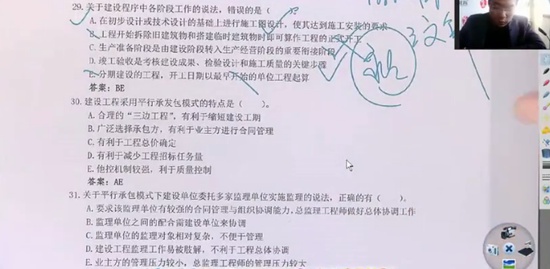 29. 关于建设程序中各阶段工作的说法，错误的是（    ）。
A. 在初步设计或技术设计的基础上进行施工图设计，使其达到施工安装的要求
B. 工程开始拆除旧建筑物和搭建临时建筑物时即可算作工程的正式开工
C. 生产准备阶段是由建设阶段转入生产经营阶段的重要衔接阶段
D. 竣工验收是考核建设成果、检验设计和施工质量的关键步骤
E. 分期建设的工程，开工日期以最早开始的单位工程起算
答案：BE
30. 建设工程采用平行承发包模式的特点是（    ）。
A. 合理约“三边工程”，有利于缩短建设工期
B. 广泛选择承包方，有利于业主方进行合同管理
C. 有利于工程总价确定
D. 有利于减少工程招标任务量
E. 他控机制较强，利于质量控制
答案：AE
31. 关于平行承包模式下建设单位委托多家监理单位实施监理的说法，正确的有（    ）。
A. 要求该监理单位有较强的合同管理与组织协调能力，总监理工程师做好总体协调工作
B. 监理单位之间的配合需建设单位来协调
C. 监理单位的监理对象相对复杂，不便于管理
D. 建设工程监理工作易被肢解，不利于工程总体协调
E. 业主方的管理压力较小，总监理工程师的管理压力较大